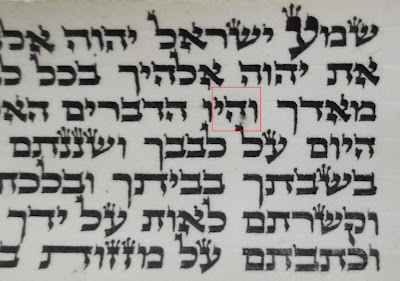 שמע ישראל יהוה אל
את יהוה אלהיך בכל ל
מאדך והיו הדברים הא
היום על לבבך ושננתם
בשבתך בביתך ובלכת
וקשרתם לאות על ידך
וכתבתם על מזזות ב